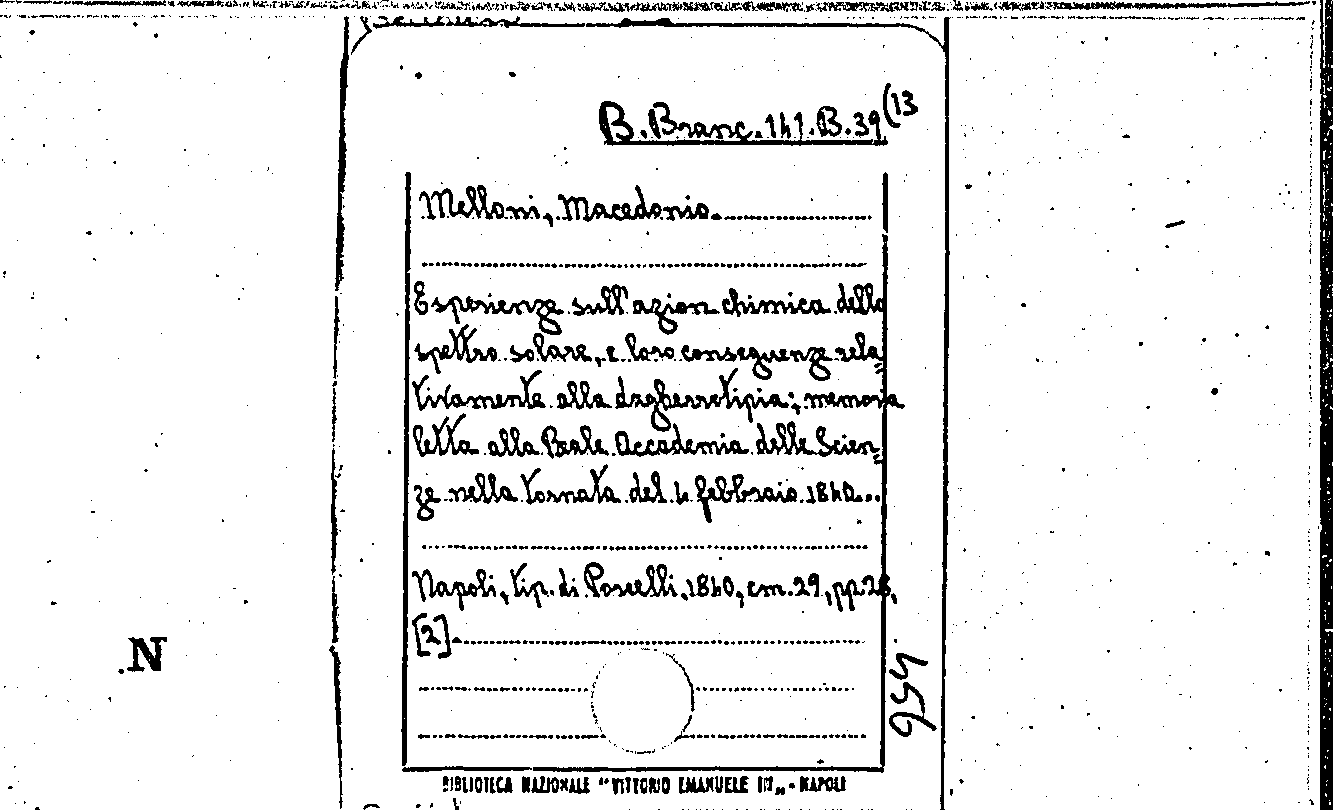 B. Branc. 141. B. 39(13
Melloni, Macedonio.
Esperienze sull'azion chimica dello
spettro solare, e loro conseguenze rela=
tivamente alla dagherrotipia; memoria
letta alla Reale Accademia delle Scien=
ze nella tornata del 4 febbraio 1840...
Napoli, tip. di Porcelli, 1840, cm. 29, pp. 28,
[2].
N
BIBLIOTECA NAZIONALE "VITTORIO EMANUELE III„ - NAPOLI